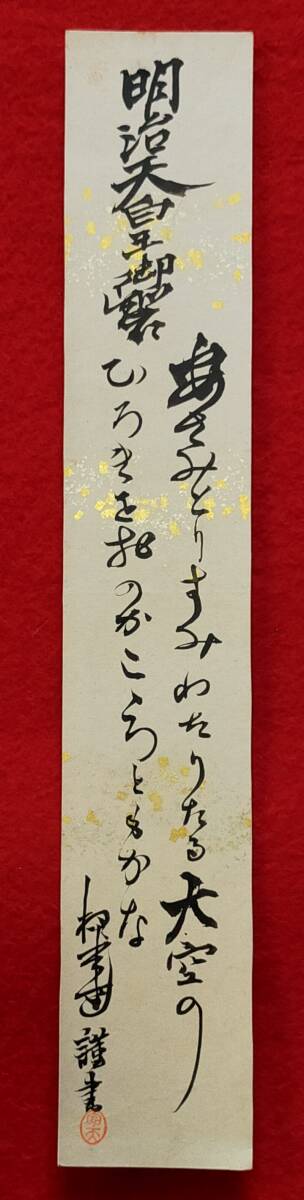 明治天皇御製
安さみとりすみわたりたる大空の
ひろきを於のがこころともがな
謹書